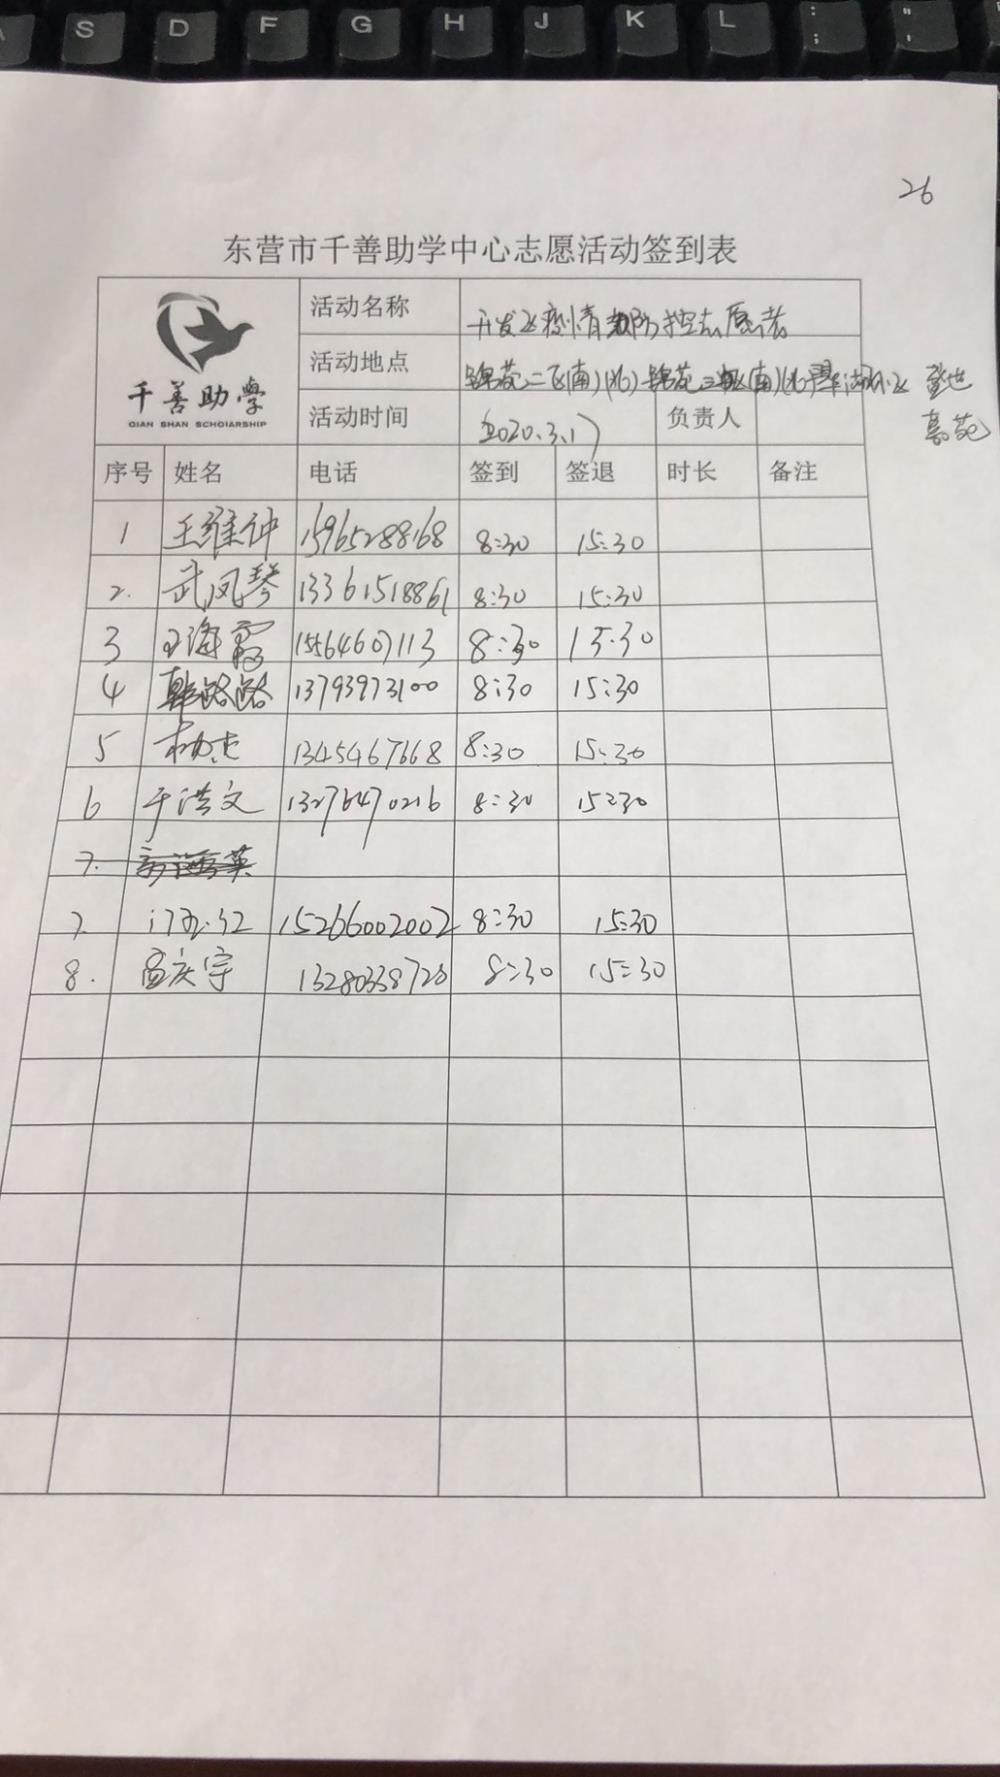 A S D F G H J K L : ; " '
26
东营市千善助学中心志愿活动签到表
千善助學
QIAN SHAN SCHOIARSHIP
活动名称 开发区疫情防控志愿者
活动地点 锦苑二区(南)(北) 锦苑三区(南)(北)
活动时间 (2020.3.1) 负责人
序号 姓名 电话 签到 签退 时长 备注
1 王维仲 15965288168 8:30 15:30
2. 武凤琴 13361518861 8:30 15:30
3 王海霞 15564607113 8:30 15:30
4 韩路路 13793973100 8:30 15:30
5 杨杰 13454677668 8:30 15:30
6 于洪文 13276470216 8:30 15:30
7.
7. 15266002002 8:30 15:30
8. 孟庆宇 13280338726 8:30 15:30